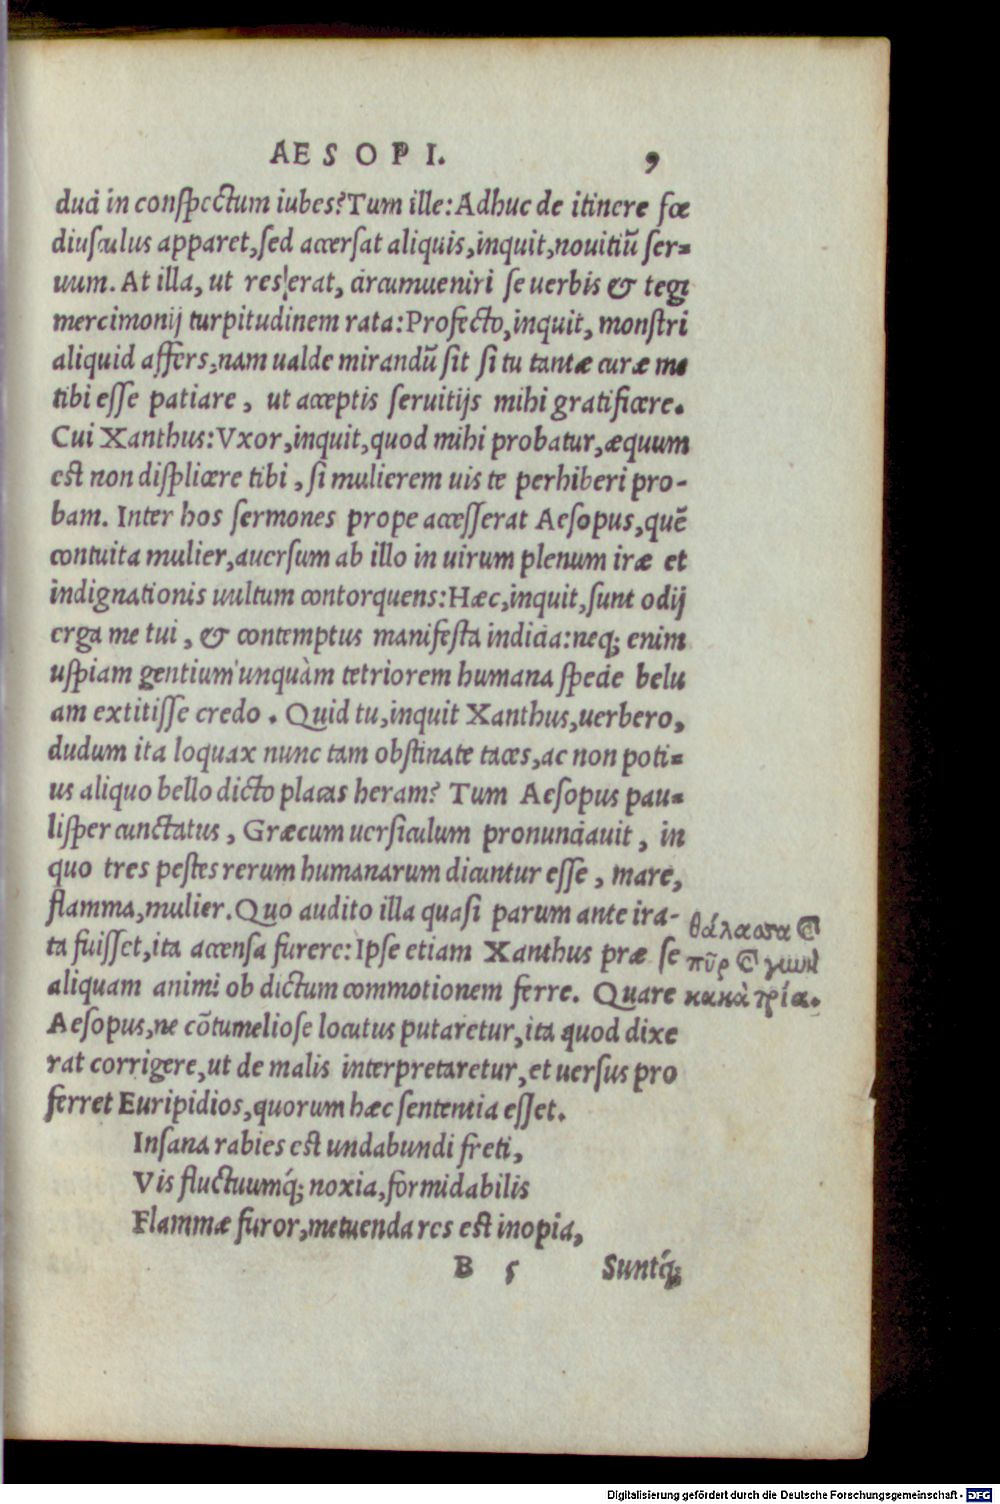 AESOPI. 9
duci in conspectum iubes? Tum ille: Adhuc de itinere fœ
diusculus apparet, sed accersat aliquis, inquit, nouitiũ ser=
uum. At illa, ut res erat, circumueniri se uerbis & tegi
mercimonij turpitudinem rata: Profecto, inquit, monstri
aliquid affers, nam ualde mirandũ sit si tu tantæ curæ me
tibi esse patiare, ut acceptis seruitijs mihi gratificere.
Cui Xanthus: Vxor, inquit, quod mihi probatur, æquum
est non displicere tibi, si mulierem uis te perhiberi pro-
bam. Inter hos sermones prope accesserat Aesopus, quẽ
contuita mulier, auersum ab illo in uirum plenum iræ et
indignationis uultum contorquens: Hæc, inquit, sunt odij
erga me tui, & contemptus manifesta indicia: neq; enim
uspiam gentium unquàm tetriorem humana specie belu
am extitisse credo. Quid tu, inquit Xanthus, uerbero,
dudum ita loquax nunc tam obstinate taces, ac non poti=
us aliquo bello dicto placas heram? Tum Aesopus pau=
lisper cunctatus, Græcum uersiculum pronunciauit, in
quo tres pestes rerum humanarum dicuntur esse, mare,
flamma, mulier. Quo audito illa quasi parum ante ira-
ta fuisset, ita accensa furere: Ipse etiam Xanthus præ se
aliquam animi ob dictum commotionem ferre. Quare
Aesopus, ne cõtumeliose locutus putaretur, ita quod dixe
rat corrigere, ut de malis interpretaretur, et uersus pro
ferret Euripidios, quorum hæc sententia esset.
θάλασσα καὶ
πῦρ καὶ γυνὴ
κακὰ τρία.
Insana rabies est undabundi freti,
Vis fluctuumq́; noxia, formidabilis
Flammæ furor, metuenda res est inopia,
B 5 Suntq́;
Digitalisierung gefördert durch die Deutsche Forschungsgemeinschaft - DFG